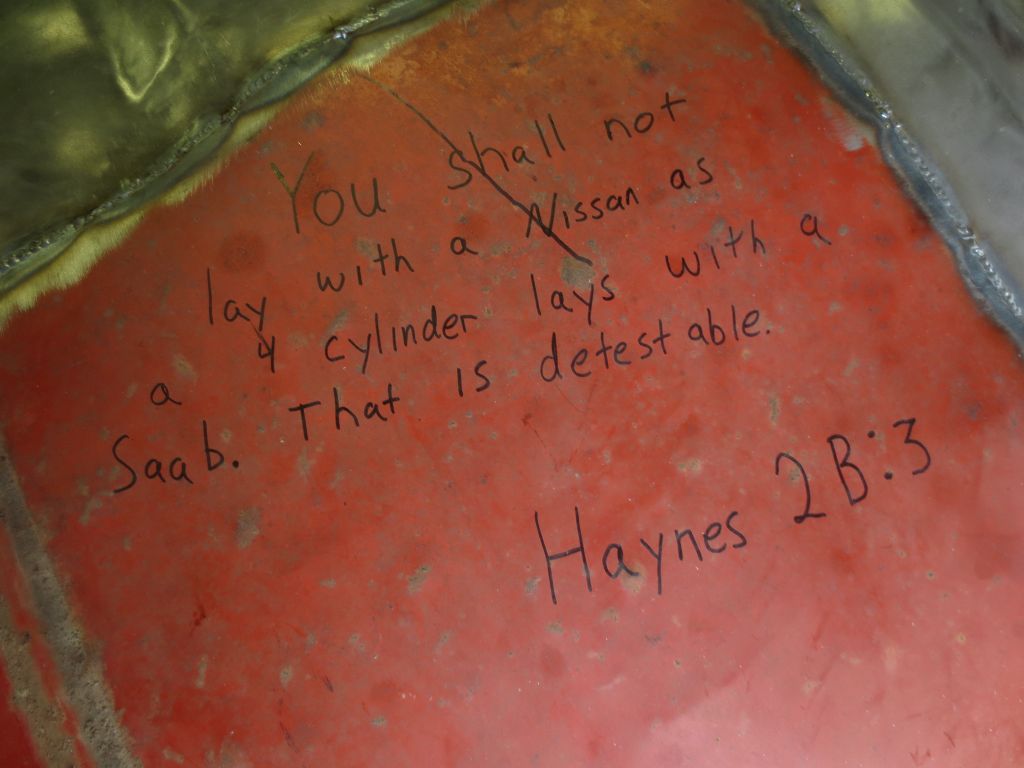 You shall not
lay with a Nissan as
a 4 cylinder lays with a
Saab. That is detestable.
Haynes 2B:3